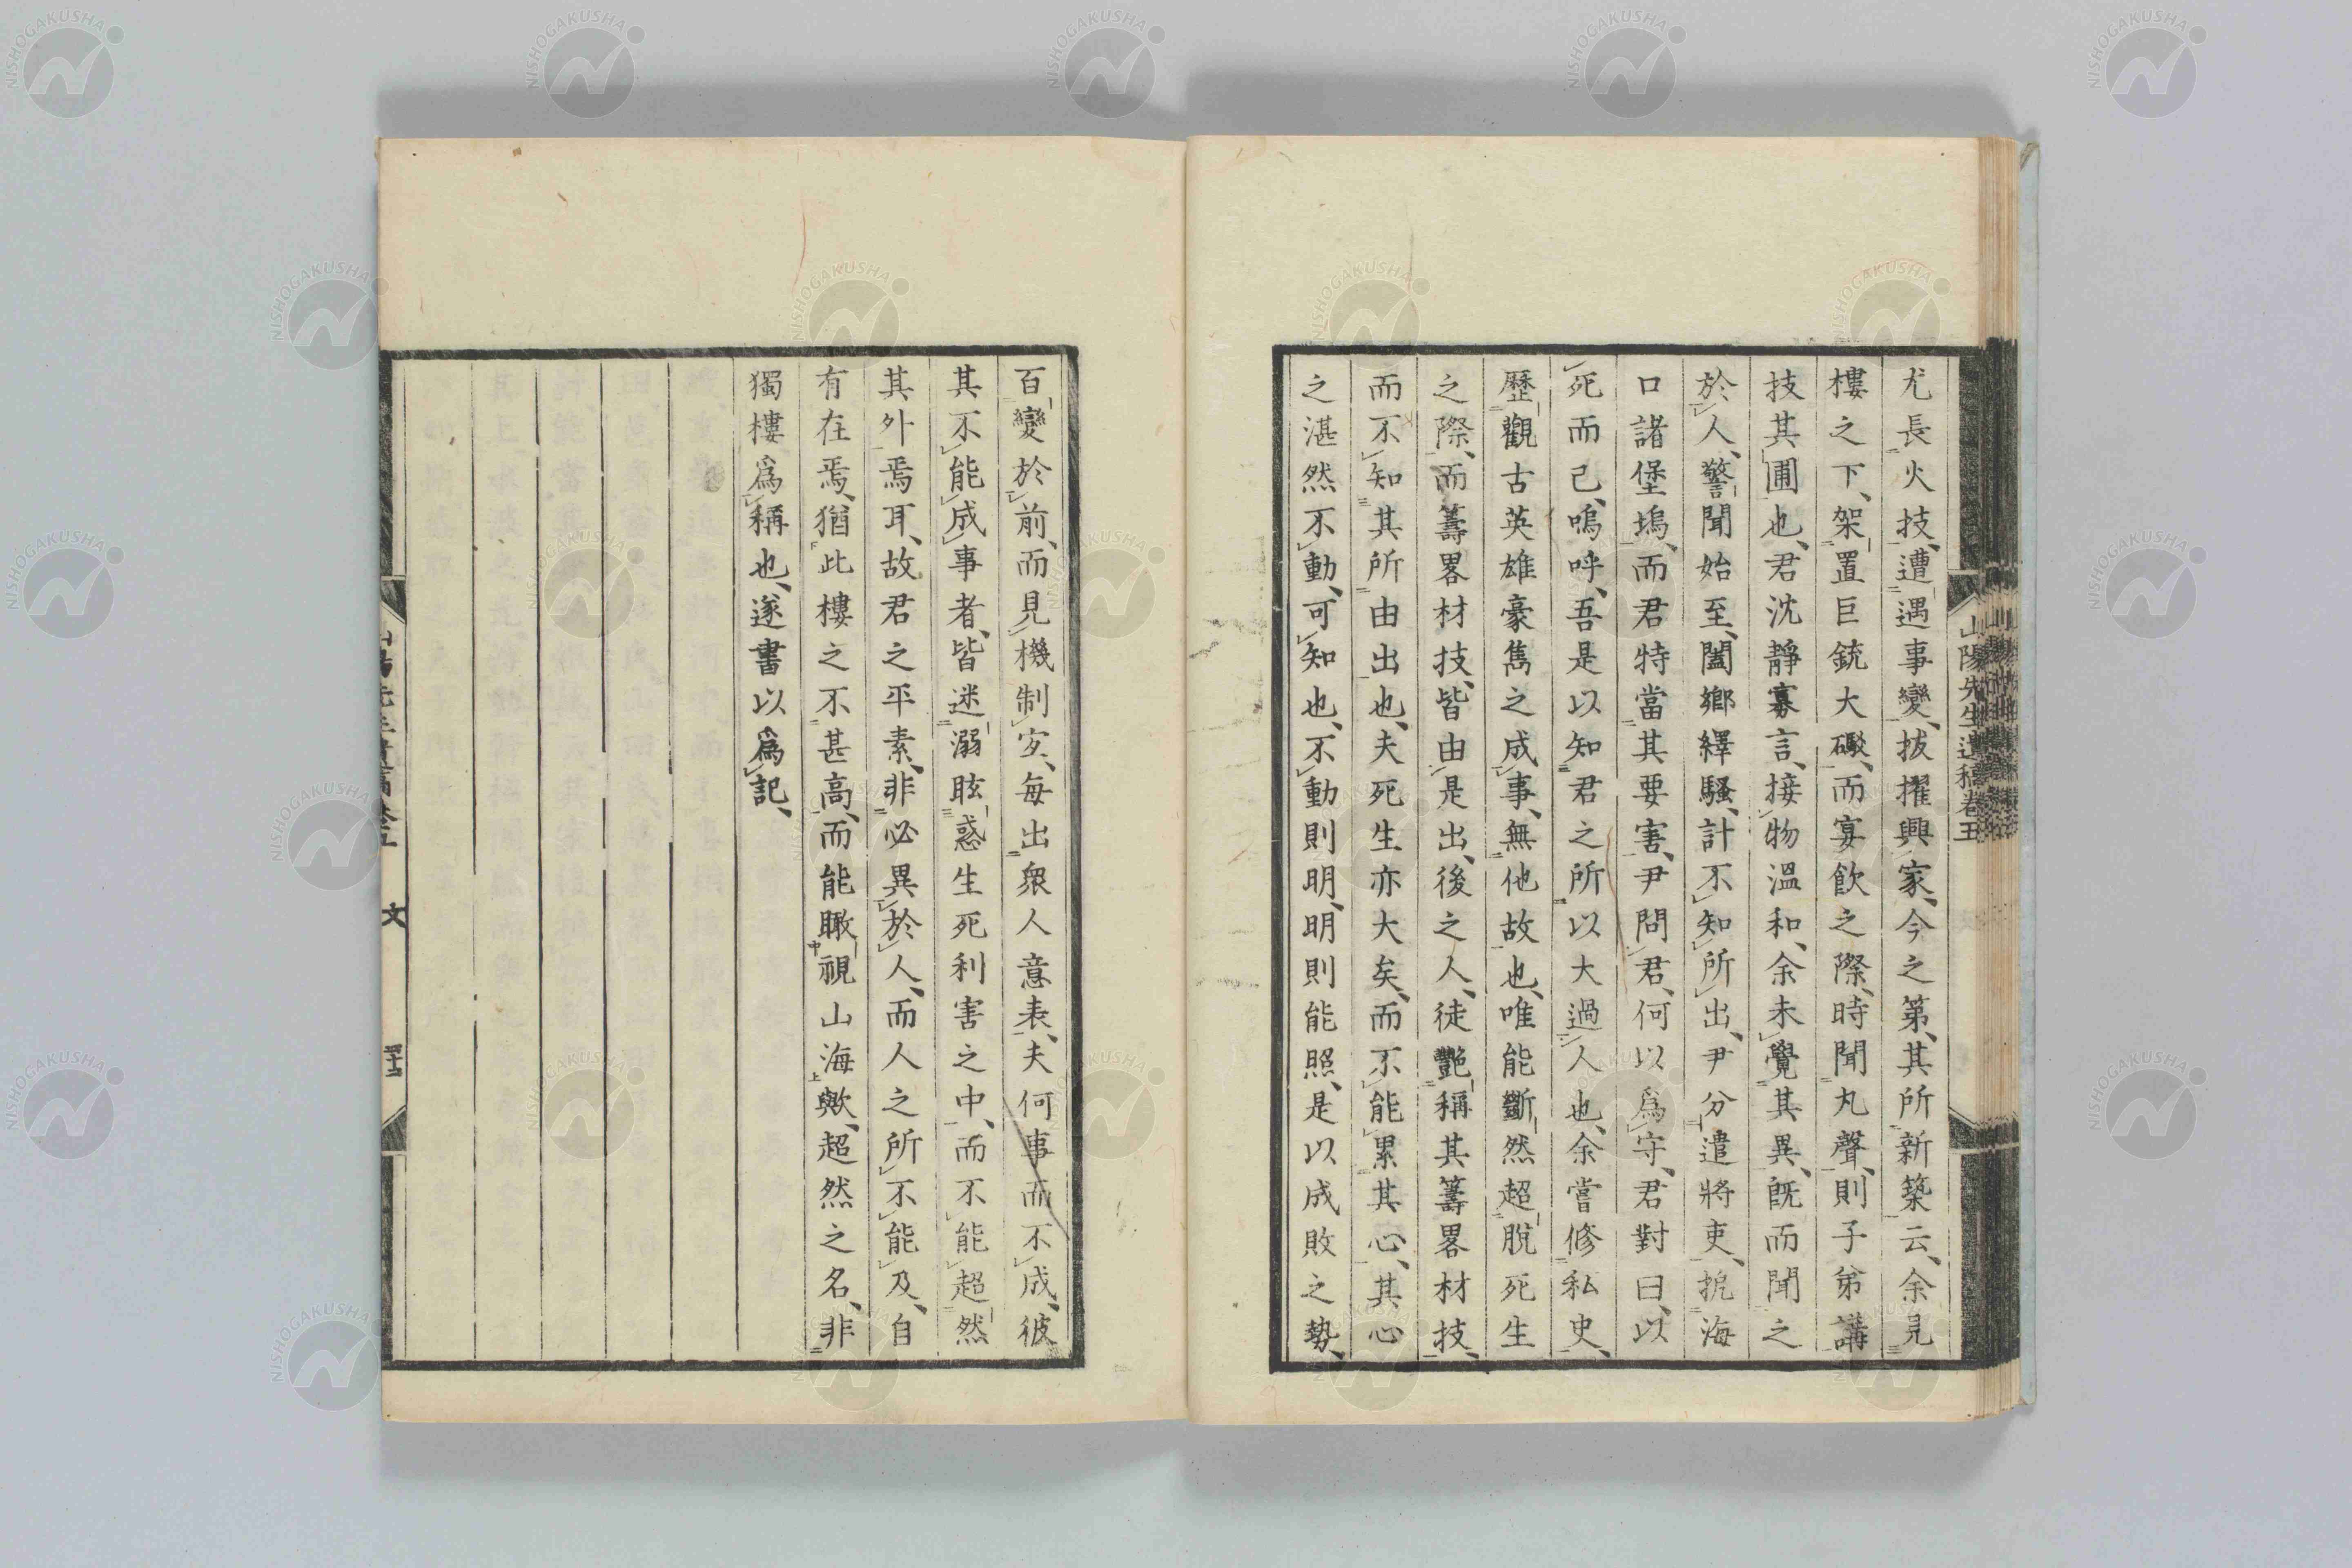 山陽先生遺稿卷五
尤長火技、遭遇事變、拔擢興家、今之第、其所新築云、余見
樓之下、架置巨銃大礮、而宴飲之際、時聞丸聲、則子弟講
技其圃也、君沈靜寡言、接物溫和、余未覺其異、既而聞之
於人、警聞始至、闔鄉繹騷、計不知所出、尹分遣將吏、扼海
口諸堡塢、而君特當其要害、尹問君、何以為守、君對曰、以
死而已、嗚呼、吾是以知君之所以大過人也、余嘗修私史、
歷觀古英雄豪雋之成事、無他故也、唯能斷然超脫死生
之際、而籌畧材技、皆由是出、後之人、徒艷稱其籌畧材技、
而不知其所由出也、夫死生亦大矣、而不能累其心、其心
之湛然不動、可知也、不動則明、明則能照、是以成敗之勢、
百變於前、而見機制宜、每出衆人意表、夫何事而不成、彼
其不能成事者、皆迷溺眩惑生死利害之中、而不能超然
其外焉耳、故君之平素、非必異於人、而人之所不能及、自
有在焉、猶此樓之不甚高、而能瞰視山海歟、超然之名、非
獨樓爲稱也、遂書以爲記、
山陽先生遺稿卷五
文
NISHOGAKUSHA